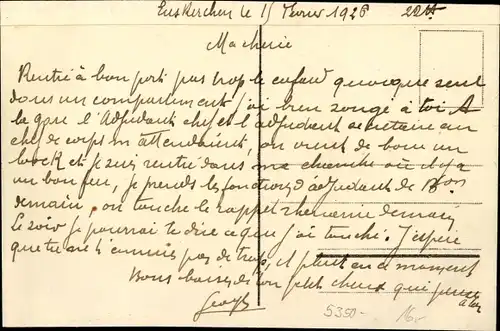 Euskirchen le 15 Fevrier 1926 22H
Ma cherie
Rentré à bon port pas trop le cafard quoique seul
dans un compartiment j'ai bien songé à toi A
la gare l'Adjudant chef et l'adjudant secretaire au
chef de corps m attendaient, on vient de boire un
bock et je suis rentré dans ma chambre où il y a
un bon feu, je prends les fonctions d adjudant de Bon
demain, on touche le rappel rhenanie demain
le soir je pourrai te dire ce que j'ai touché. J'espère
que tu ne t'ennuis pas de trop, il pleut en ce moment
Bons baisers de ton petit cheri qui pense
à toi
5350- 16,-